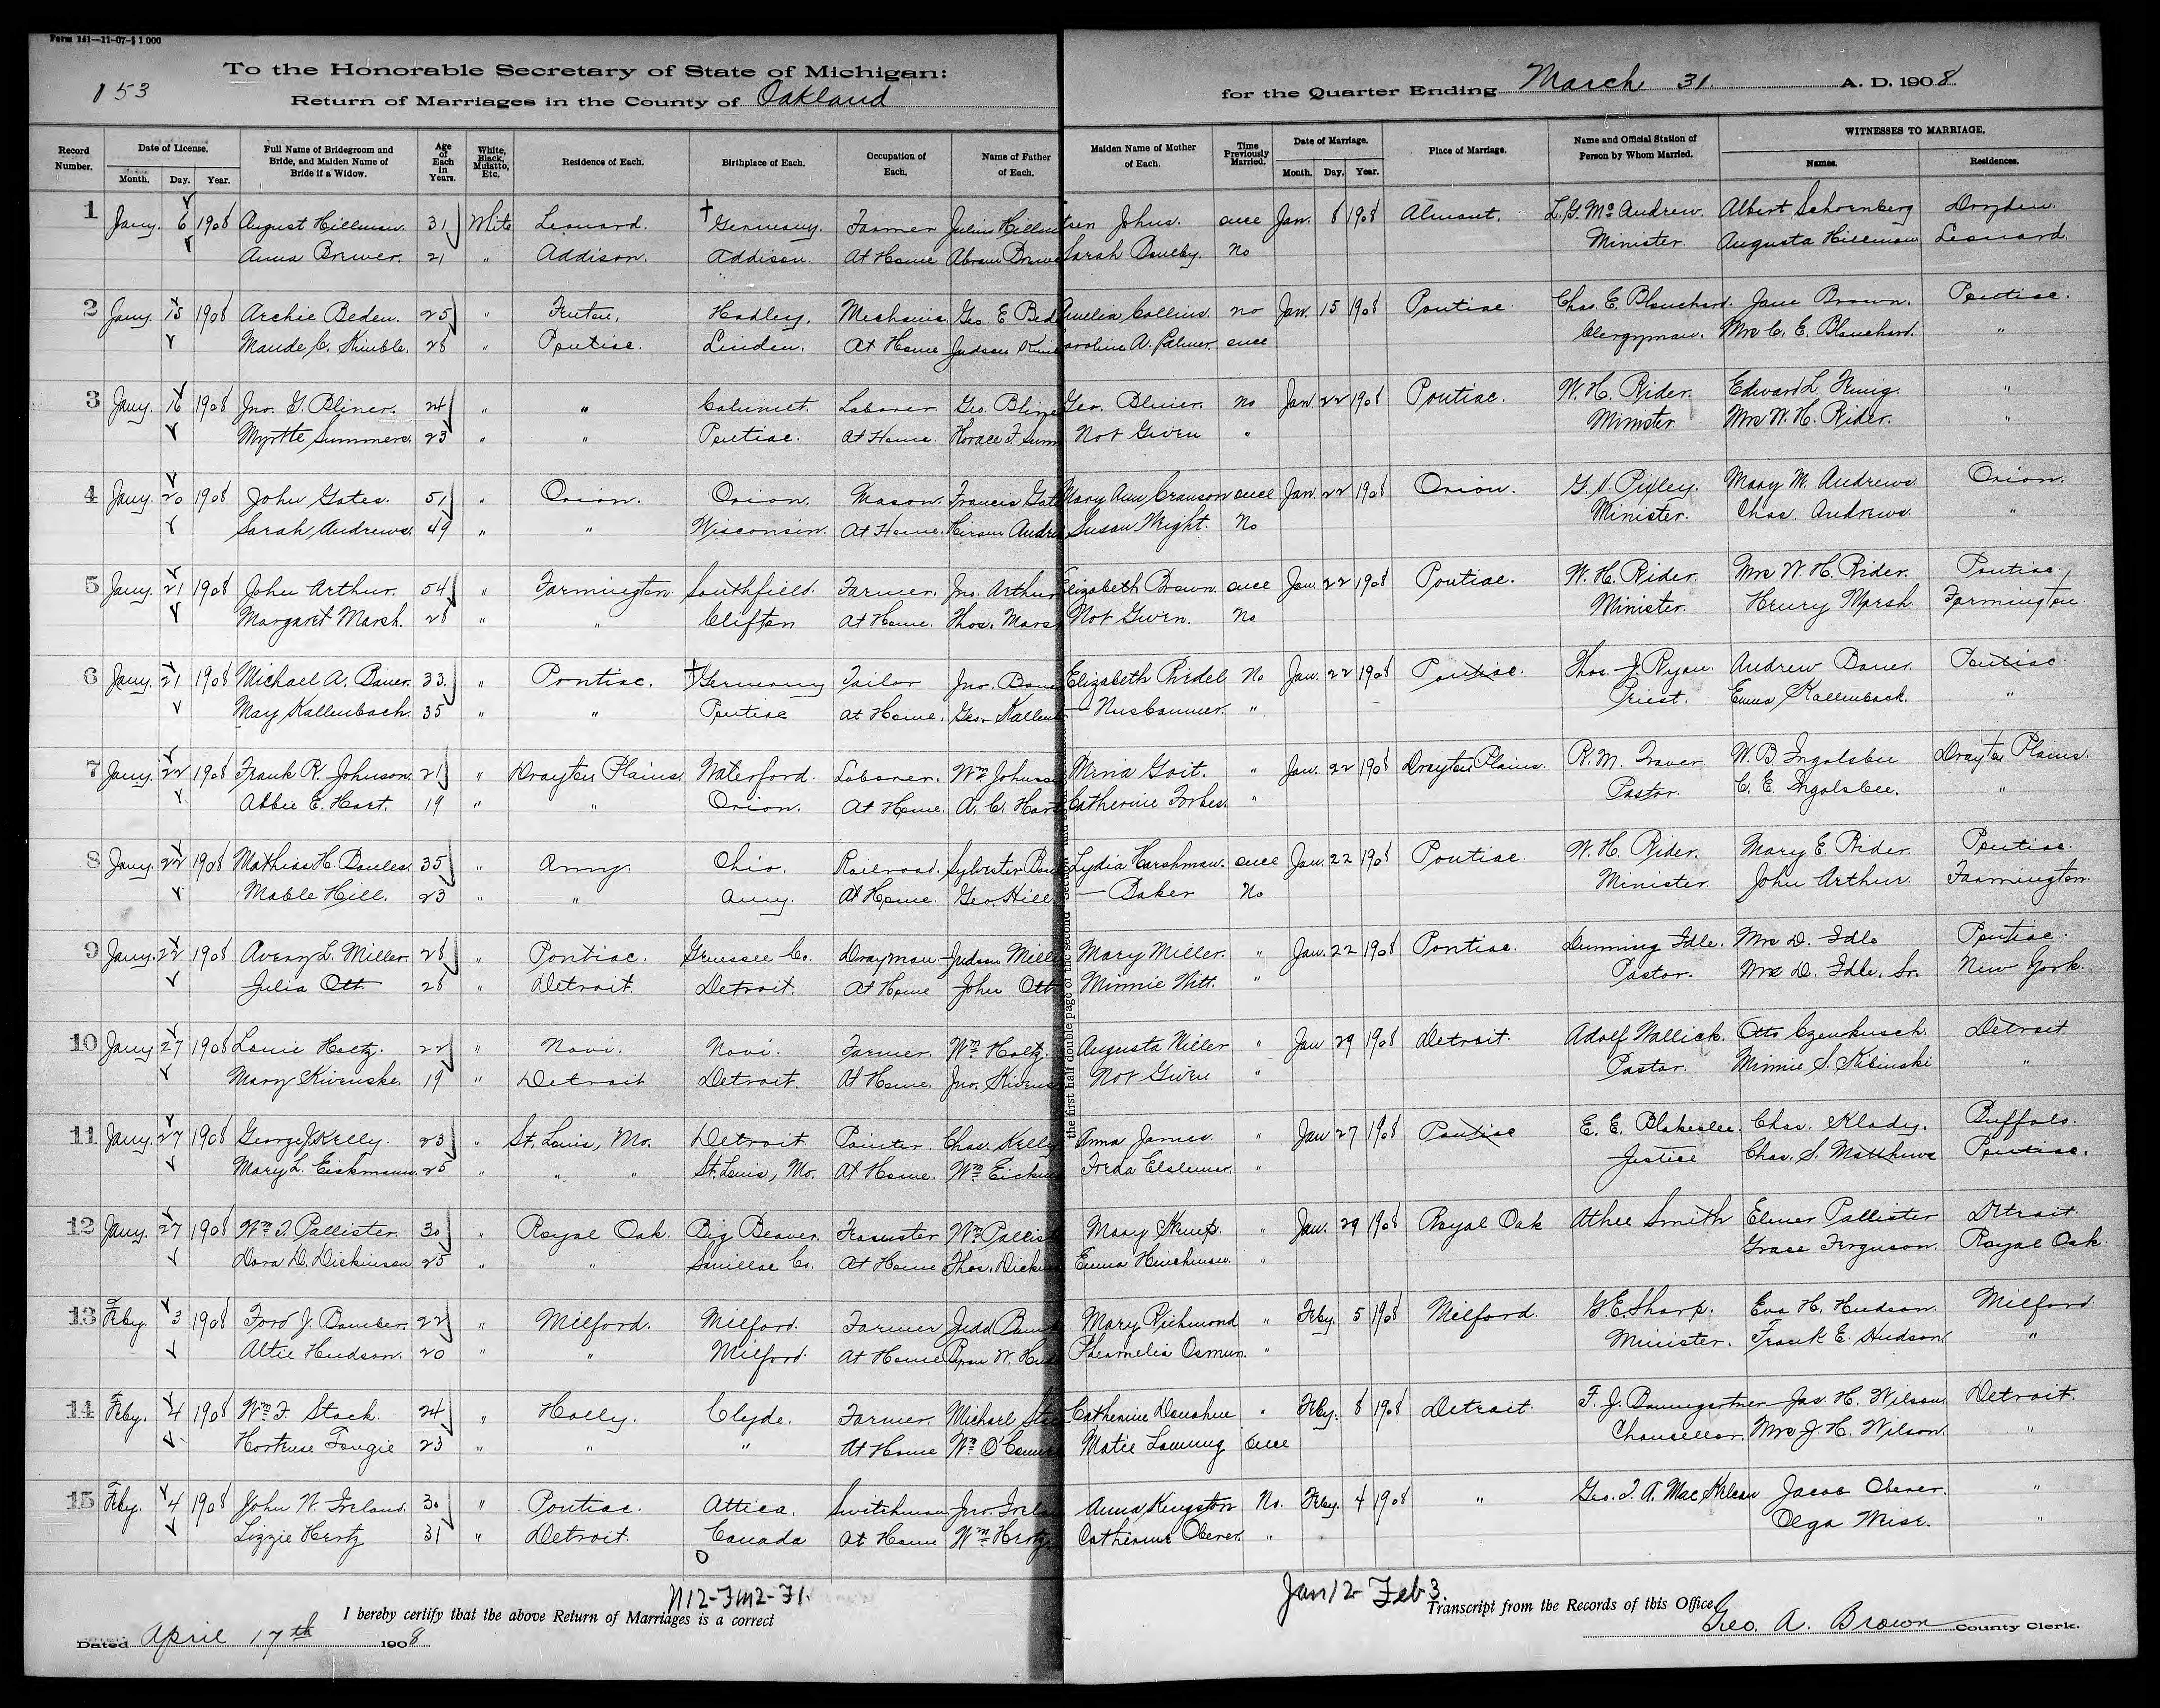 Form 141—11-07-§ 1 000
To the Honorable Secretary of State of Michigan:
153
Return of Marriages in the County of Oakland
for the Quarter Ending March 31. A. D. 1908
Record Number. Date of License. Month. Day. Year. Full Name of Bridegroom and Bride, and Maiden Name of Bride if a Widow. Age of Each in Years. White, Black, Mulatto, Etc. Residence of Each. Birthplace of Each. Occupation of Each. Name of Father of Each. Maiden Name of Mother of Each. Time Previously Married. Date of Marriage. Month. Day. Year. Place of Marriage. Name and Official Station of Person by Whom Married. WITNESSES TO MARRIAGE. Names. Residences.
1 Jany. 6 1908 August Hillman. 31 White Leonard. Germany. Farmer Julius Johns. once Jan. 8 1908 Almont. L.G. Mc Andrew. Albert Schoenberg Dryden.
Anna Brewer. 21 " Addison. Addison. At Home Abram Sarah No Minister. Augusta Hillman Leonard.
2 Jany. 15 1908 Archie Beden. 25 " Fenton. Hadley. Mechanic. Geo. E. Amelia Collins. no Jan. 15 1908 Pontiac. Chas. E. Blanchard. Jane Brown. Pontiac.
Maude C. Kimble. 28 " Pontiac. Linden. At Home Judson A. Palmer. once Clergyman. Mrs C. E. Blanchard. "
3 Jany. 16 1908 Jno. G. Bliner. 24 " " Calumet. Laborer. Geo. Geo. Bliner. no Jan. 22 1908 Pontiac. W. H. Rider. Edward L. "
Myrtle Summers. 23 " " Pontiac. At Home. Horace F. Not Given " Minister Mrs W. H. Rider. "
4 Jany. 20 1908 John Gates. 51 " Orion. Orion. Mason. Francis Mary Ann Cranson once Jan. 22 1908 Orion. G. Pixley. Mary M. Andrews Orion.
Sarah Andrews. 49 " " Wisconsin. At Home. Hiram Susan Wright. No Minister. Chas. Andrews "
5 Jany. 21 1908 John Arthur. 54 " Farmington. Southfield. Farmer. Jno. Arthur Elizabeth Brown. once Jan. 22 1908 Pontiac. W. H. Rider. Mrs W. H. Rider. Pontiac.
Margaret Marsh. 28 " " Clifton At Home. Thos. Not Given. No Minister. Henry Marsh Farmington.
6 Jany. 21 1908 Michael A. Bauer. 33. " Pontiac. Germany Tailor Jno. Elizabeth Riedel No Jan. 22 1908 Pontiac. Thos. J. Ryan. Andrew Bauer. Pontiac.
May Kallenbach. 35 " " Pontiac At Home. Geo. — Nusbaumer. " Priest. Emma Kallenback. "
7 Jany. 22 1908 Frank R. Johnson. 21 " Drayton Plains Waterford. Laborer. Wm Mina Goit. " Jan. 22 1908 Drayton Plains. R. M. Traver. W. B. Ingolsbee Drayton Plains.
Abbie E. Hart. 19 " " Orion. At Home. A. C. Catherine Forbes. " Pastor. C. E. Ingolsbee. "
8 Jany. 22 1908 Mathias H. Boules. 35 " Amy. Ohio. Railroad. Sylvester Lydia Harshman. once Jan. 22 1908 Pontiac. W. H. Rider. Mary E. Rider. Pontiac.
Mable Hill. 23 " " Amy. At Home. Geo. Hill — Baker No Minister. John Arthur. Farmington.
9 Jany. 22 1908 Avery L. Miller. 28 " Pontiac. Genesee Co. Drayman. Judson Mary Miller. " Jan. 22 1908 Pontiac. Dunning Idle. Mrs D. Idle Pontiac.
Julia Ott 28 " Detroit. Detroit. At Home John Ott Minnie Nitt. " Pastor. Mrs D. Idle, Sr. New York.
10 Jany 27 1908 Louie Holtz. 22 " Novi. Novi. Farmer. Wm Holtz. Augusta Niller " Jan 29 1908 Detroit. Adolf Wallick. Otto Detroit
Mary Kivenske. 19 " Detroit Detroit. At Home. Jno. Not Given " Pastor. Minnie S. Kibinski "
11 Jany. 27 1908 George J. Kelly. 23 " St. Louis, Mo. Detroit. Painter. Chas. Kelly Anna James. " Jan 27 1908 Pontiac E. E. Blakeslee. Chas. Klady. Buffalo.
Mary L. Eickmann. 25 " " " St. Louis, Mo. At Home. Wm Freda " Justice Chas. S. Matthews Pontiac.
12 Jany. 27 1908 Wm T. Pallister. 30 " Royal Oak. Big Beaver. Teamster Wm Mary Kemp. " Jan. 29 1908 Royal Oak Athel Smith Elmer Pallister Detroit.
Dora D. Dickinson 25 " " Sanillac Co. At Home Thos. Emma Hinchman. " Grace Ferguson. Royal Oak.
13 Feby. 3 1908 Ford J. Bamber. 22 " Milford. Milford. Farmer Judd Mary Richmond " Feby. 5 1908 Milford. G. E. Sharp. Eva H. Hudson. Milford
Altie Hudson. 20 " " Milford At Home W. Osmun. " Minister. Frank E. Hudson. "
14 Feby. 4 1908 Wm F. Stack. 24 " Holly. Clyde. Farmer. Michael Catherine Donahue " Feby. 8 1908 Detroit. F. J. Baumgartner Jas. H. Wilson Detroit.
Hortense Tengie 23 " " " At Home Wm Matie once Chancellor. Mrs J. H. Wilson. "
15 Feby. 4 1908 John W. Ireland. 30 " Pontiac. Attica. Switchman Jno. Anna Kingston No. Feby. 4 1908 " Geo. Jacob Oberer. "
Lizzie Hertz 31 " Detroit. Canada At Home Wm Hertz Catherine Oberer. " Olga Misr. "
the first half double page of the second
N12-Fm2-F1.
Jan 12- Feb 3.
I hereby certify that the above Return of Marriages is a correct Transcript from the Records of this Office.
Dated April 17th 1908 Geo. A. Brown County Clerk.